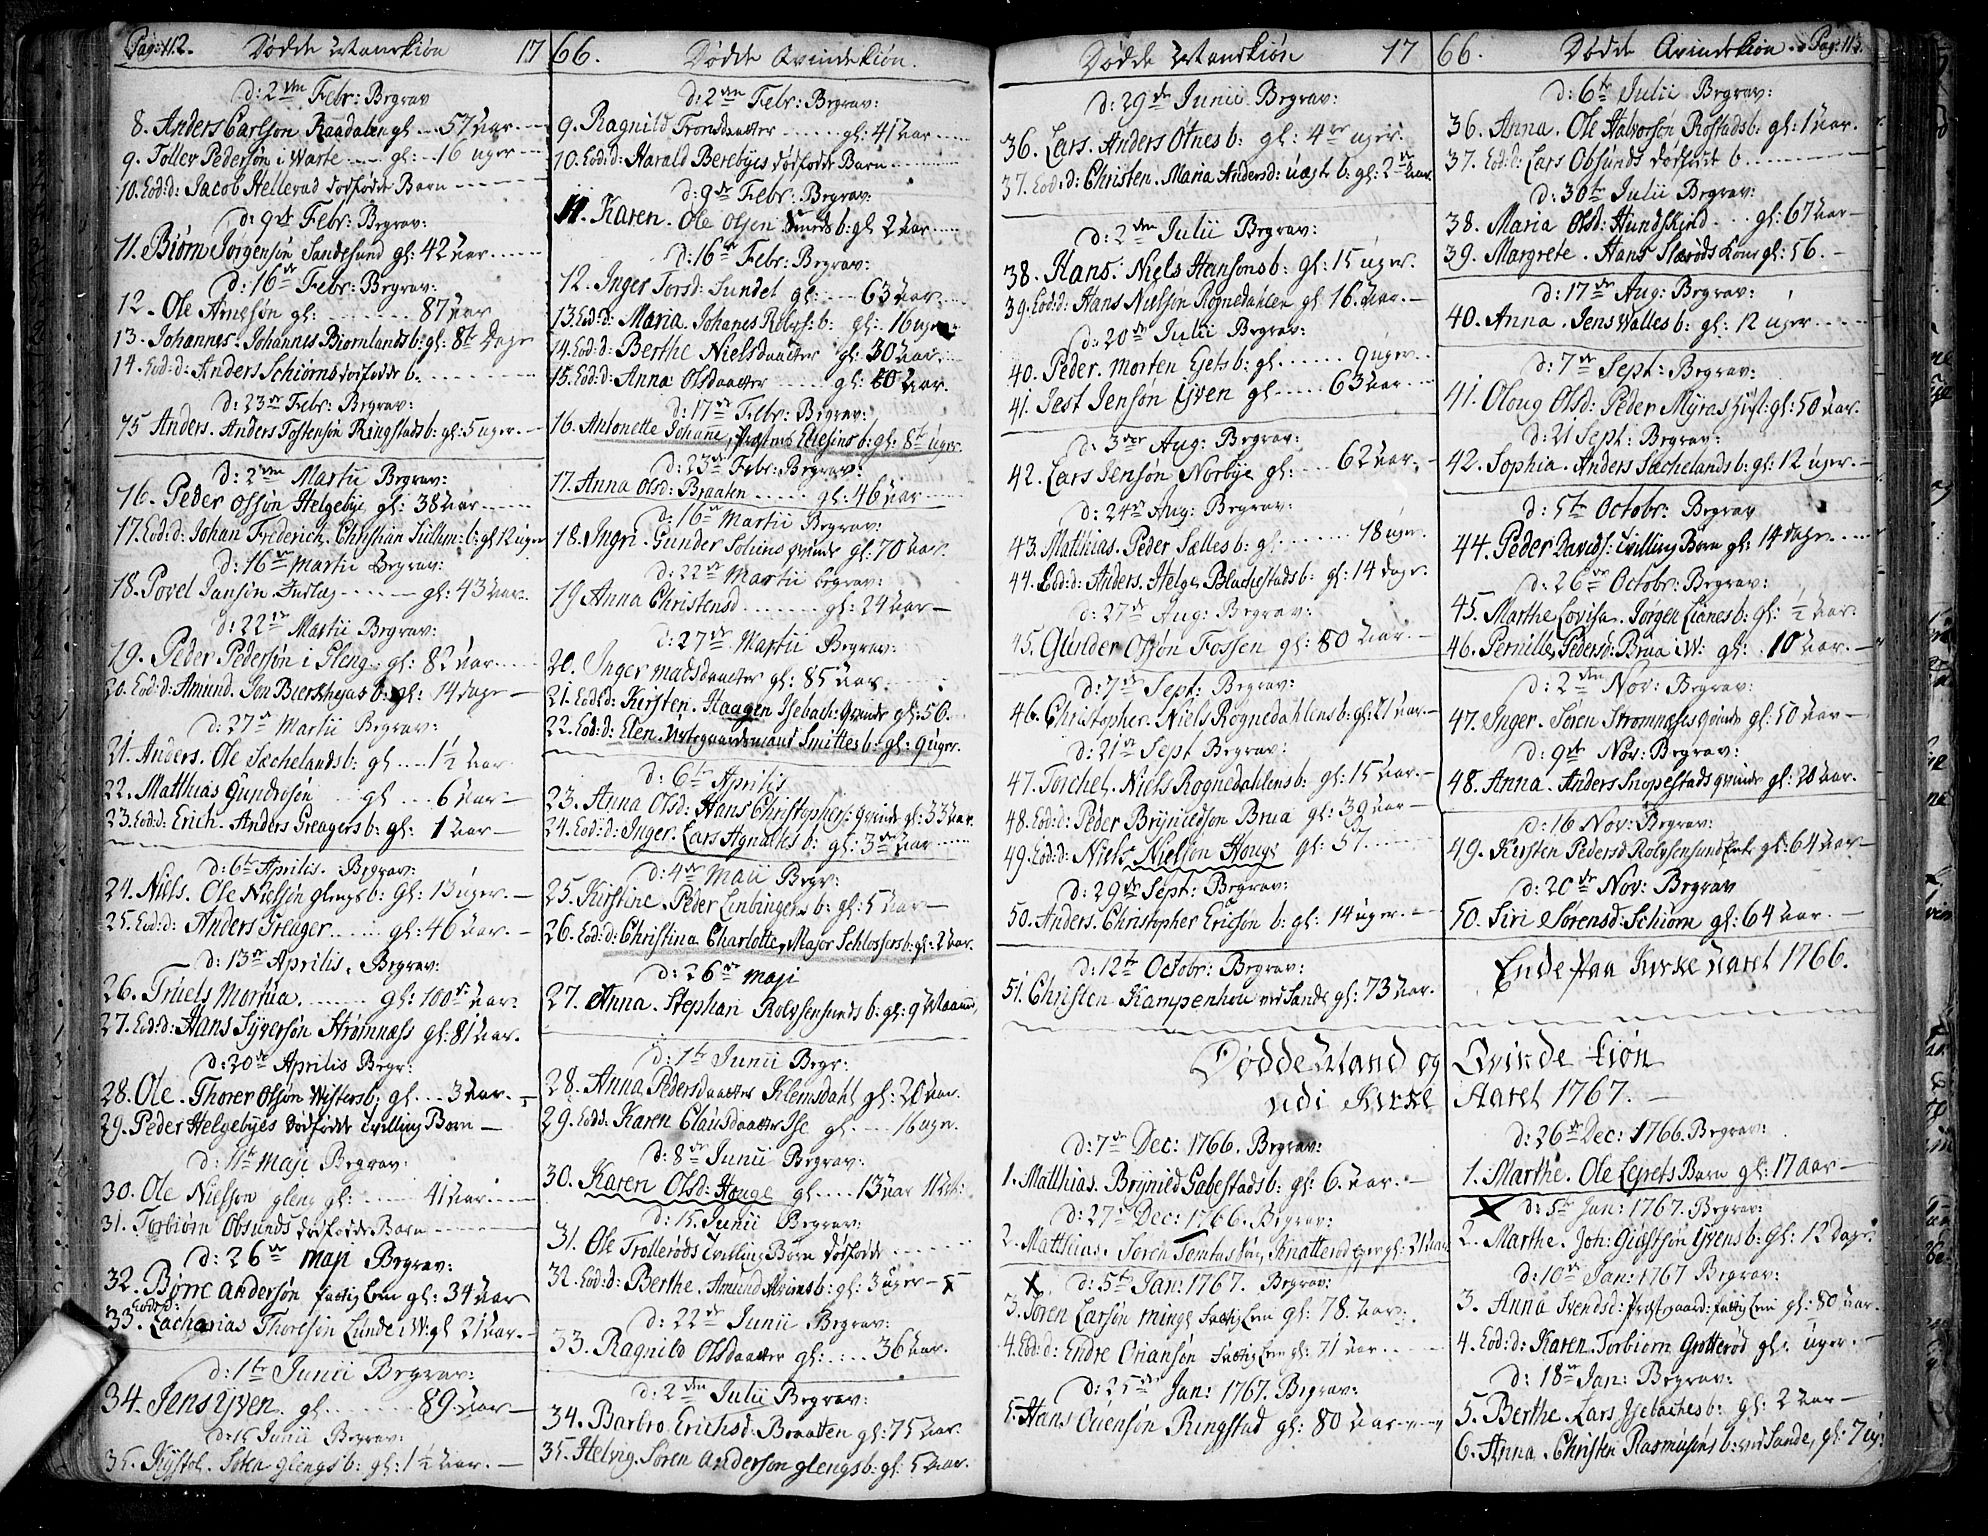 Pag: 112. Dødde Mandkiøn 17
d: 2den Febr: Begrav
8. Anders Carlsøn Raadalen gl 57 Aar
9. Toller Pedersøn i Warte gl: 16 uger
10. Eod: d: Jacob Hellerød dødfødde Barn
d: 9de Febr: Begrav:
11. Biørn Jørgensøn Sandesund gl: 42 Aar
d: 16de Febr: Begrav:
12. Ole Arnesøn gl: 87 Aar
13. Johannes. Johannes Biørnlands b: gl: 8te Dage
14. Eod: d: Anders Schiørns dødfødde b.
d: 23de Febr: Begrav:
15 Anders. Anders Tostensøn Ringstads b: gl: 5 uger.
d: 2den Martii Begrav:
16. Peder Olsøn Helgebye gl: 38 Aar
17. Eod: d: Johan Frederich. Christian b: gl 12 uger
d: 16de Martii Begrav:
18. Povel Jansøn gl: 43 Aar
d: 22de Martii Begrav:
19. Peder Pedersøn i Gleng gl: 82 Aar
20. Eod: d: Amund. Jon b: gl: 14 dage
d: 27de Martii Begrav:
21. Anders. Ole Sæchelands b: gl 1½ Aar
22. Matthias Gundersøn gl 6 Aar
23. Eod: d: Erich. Anders Greagers b: gl: 1 Aar
d: 6te Aprilis. Begrav:
24. Niels. Ole Nielsøn glengs b: gl: 13 uger.
25. Eod: d: Anders Greager gl: 46 Aar
d: 13de Aprilis. Begrav:
26. Truels Mortua. gl: 100de Aar.
27. Eod: d: Hans Syversøn Strømnæss gl: 81 Aar.
d: 20de Aprilis Begr:
28. Ole. Thorer Olsøn Wisters b: gl 3 Aar.
29. Peder Helgebyes dødfødde Tvilling Barn
d: 11te Maji Begrav:
30. Ole Nielsøn gleng gl: 41 Aar
31. Torbiørn Obsunds dødfødde Barn
d: 26de Maji Begrav:
32. Børre Andersøn fattig Lem gl: 34 Aar
33. Eod: d: Zacharias Thoresøn Lunde i W: gl 21 Aar.
d: 1te Junii Begrav:
34. Jens Yven. gl 89 Aar
d: 15 Junii Begrav:
35. glengs b: gl: 1½ Aar.
66. Dødde Qvindekiøn.
d: 2den Febr: Begrav:
9. Ragnild Tronsdaatter gl: 41 Aar
10. Eod: d: Harald Berebyes dødfødde Barn
d: 9de Febr: Begrav:
11. Karen. Ole Olsen Smeds b: gl 2 Aar
d: 16de Febr: Begrav:
12. Inger Torsd: Sundet gl: 63 Aar
13. Eod: d: Maria. Johanes Rolvs: b: gl: 16 uger
14. Eod: d: Berthe Nielsdaatter gl: 30 Aar
15. Eod: d: Anna Olsdaatter gl: 60 Aar.
d: 17de Febr: Begrav:
16. Antonette Johane, b: gl: 8te uger
d: 23de Febr: Begrav:
17. Anna Olsd: Braaten gl: 46 Aar
d: 16de Martii Begrav:
18. Ingri. Gunder Solums qvinde gl: 70 Aar.
d: 22de Martii Begrav:
19 Anna Christensd gl: 24 Aar
d: 27de Martii Begrav:
20. Inger Madsdaatter gl: 85 Aar.
21. Eod: d: Kirsten. Haagen Isebach: Qvinde gl: 56.
22. Eod: d: Elen. Urtegaardsmand Smittes b: gl: 9 uger.
d: 6te Aprilis
23. Anna Olsd: Hans Christophers: Qvinde gl: 33 Aar.
24. Eod: d: Inger. Lars Agnalts b: gl: 3de Aar
d: 4de Maii Begr:
25. Kirstine. Peder Linbingers b: gl: 5 Aar
26. Eod: d: Christina Charlotte, Major Schlossers b: gl: 2 Aar.
d: 26de Maji
27. Anna. Stephan Rolvsensunds b: gl: 9 Maand
d: 1te Junii Begr:
28. Anna Pedersdaatter Klemsdahl gl: 20 Aar.
29. Eod: d: Karen Clausdaatter Ise gl: 16 uger.
d: 8de Junii Begrav:
30. Karen Olsd: Houge gl 13 Aar
d: 15 Junii Begrav:
31. Ole Trollerøds Tvilling Børn dødfødde
32. Eod: d: Berthe. Amund b: gl: 3 uger
d: 22de Junii Begrav:
33. Ragnild Olsdaatter gl: 36 Aar.
d: 2den Julii Begrav:
34. Barbro Erichsd: Braatten gl: 75 Aar.
35. Helvig. Søren Andersøn glengs b: gl: 5 Aar.
Dødde Mandkiøn 17
d: 29de Junii Begrav:
36. Lars. Anders Øtnes b: gl: 4re uger.
37. Eod: d: Christen. Maria Andersd: uægte b: gl: 2de Aar.
d: 2den Julii Begrav:
38. Hans. Niels Hansøns b: gl: 15 uger.
39. Eod: d: Hans Nielsøn Rognedahlen gl: 16 Aar.
d: 20de Julii Begrav:
40. Peder. Morten Gjets b: gl. 9 uger.
41. Jest Jensøn Yven gl 63 Aar
d: 3die Aug: Begrav:
42. Lars Jensøn Norbye gl: 62 Aar.
d: 24de Aug: Begrav:
43. Matthias. Peder Sælles b: gl: 18 uger.
44. Eod: d: Anders. Helge Blachestads b: gl: 14 dage.
d: 27de Aug: Begrav:
45. Gunder Olsøn Fossen gl: 80 Aar.
d: 7de Sept: Begrav:
46. Christopher. Niels Rognedahlens b: gl: 21 Aar.
d: 21de Sept Begrav:
47. Torchel. Niels Rognedahlens b: gl: 15 Aar.
48. Eod: d: Peder Brynildsøn Brua gl: 39 Aar
49. Eod: d: Niels Nielsøn Houge gl: 57
d: 29de Sept: Begrav:
50. Anders. Christopher Ericsøn b: gl: 14 uger.
d: 12te Octobr: Begrav:
51. Christen Kampenhou ved Sande gl: 73 Aar.
Dødde Mand og Qvinde kiøn
udi Kirke Aaret 1767.
d: 7de Dec: 1766. Begrav:
1. Matthias. Brynild Gabestads b: gl: 6. Aar.
d: 27de Dec: 1766. Begrav:
2. Matthias. Knatterød gl: 21 Aar
X d: 5te Jan: 1767. Begrav:
3. Søren Larsøn Minge fattig Lem gl: 78. Aar.
4. Eod: d: Endre Oriansøn fattig Lem gl: 71 Aar
d: 25de Jan: 1767. Begrav:
5. Hans Ouensøn Ringstad gl: 80 Aar
66. Dødde Qvindekiøn. Pag: 113.
d: 6te Julii Begrav:
36. Anna. Ole Halvorsøn Rostads b: gl: 1 Aar.
37. Eod: d: Lars Obsunds dødfødde b.
d: 30te Julii Begrav:
38. Maria Olsd: Hundskind gl: 67 Aar
39. Margrete. Hans Kone gl: 56.
d: 17de Aug: Begrav:
40. Anna. Jens Walles b: gl: 12 uger
d: 7de Sept: Begrav:
41. Oloug Olsd: Peder Myras gl: 50 Aar.
d: 21 Sept: Begrav:
42. Sophia. Anders Sæchelands b: gl: 12 uger.
d: 5te Octobr: Begrav
44. Peder Davids: Tvilling Børn gl: 14 dage.
d: 26de Octobr: Begrav:
45. Marthe Lovise. Jørgen Lianes b: gl: ½ Aar.
46. Pernille Pedersd: Brua i W: gl: 10 Aar.
d: 2den Nov: Begrav:
47. Inger. Søren Strømnæss qvinde gl: 50 Aar
d: 9de Nov: Begrav:
48. Anna. Anders Snopestads qvinde gl: 20 Aar.
d: 16 Nov: Begrav:
49. Kirsten Pedersd Rolvsensund gl: 64 Aar
d: 20de Nov: Begrav
50. Siri Sørensd: Schiørn gl: 64 Aar.
Ende paa Kirke Aaret 1766.
d: 26de Dec: 1766. Begrav:
1. Marthe. Ole Leprets Barn gl: 17 Aar
X d: 5te Jan: 1767. Begrav:
2. Marthe. Joh: Giøstsøn Yvens b: gl: 12 Dage
d: 10de Jan: 1767 Begrav:
3. Anna Svendsd: Præstgaard: fattig Lem gl: 80 Aar.
4. Eod: d: Karen. Torbiørn Grotterød gl: uger.
d: 18de Jan: Begrav:
5. Berthe. Lars Isebaches b: gl: 2 Aar
6. Anna. Christen Rasmusøns b: ved Sande, gl: 7 ug: